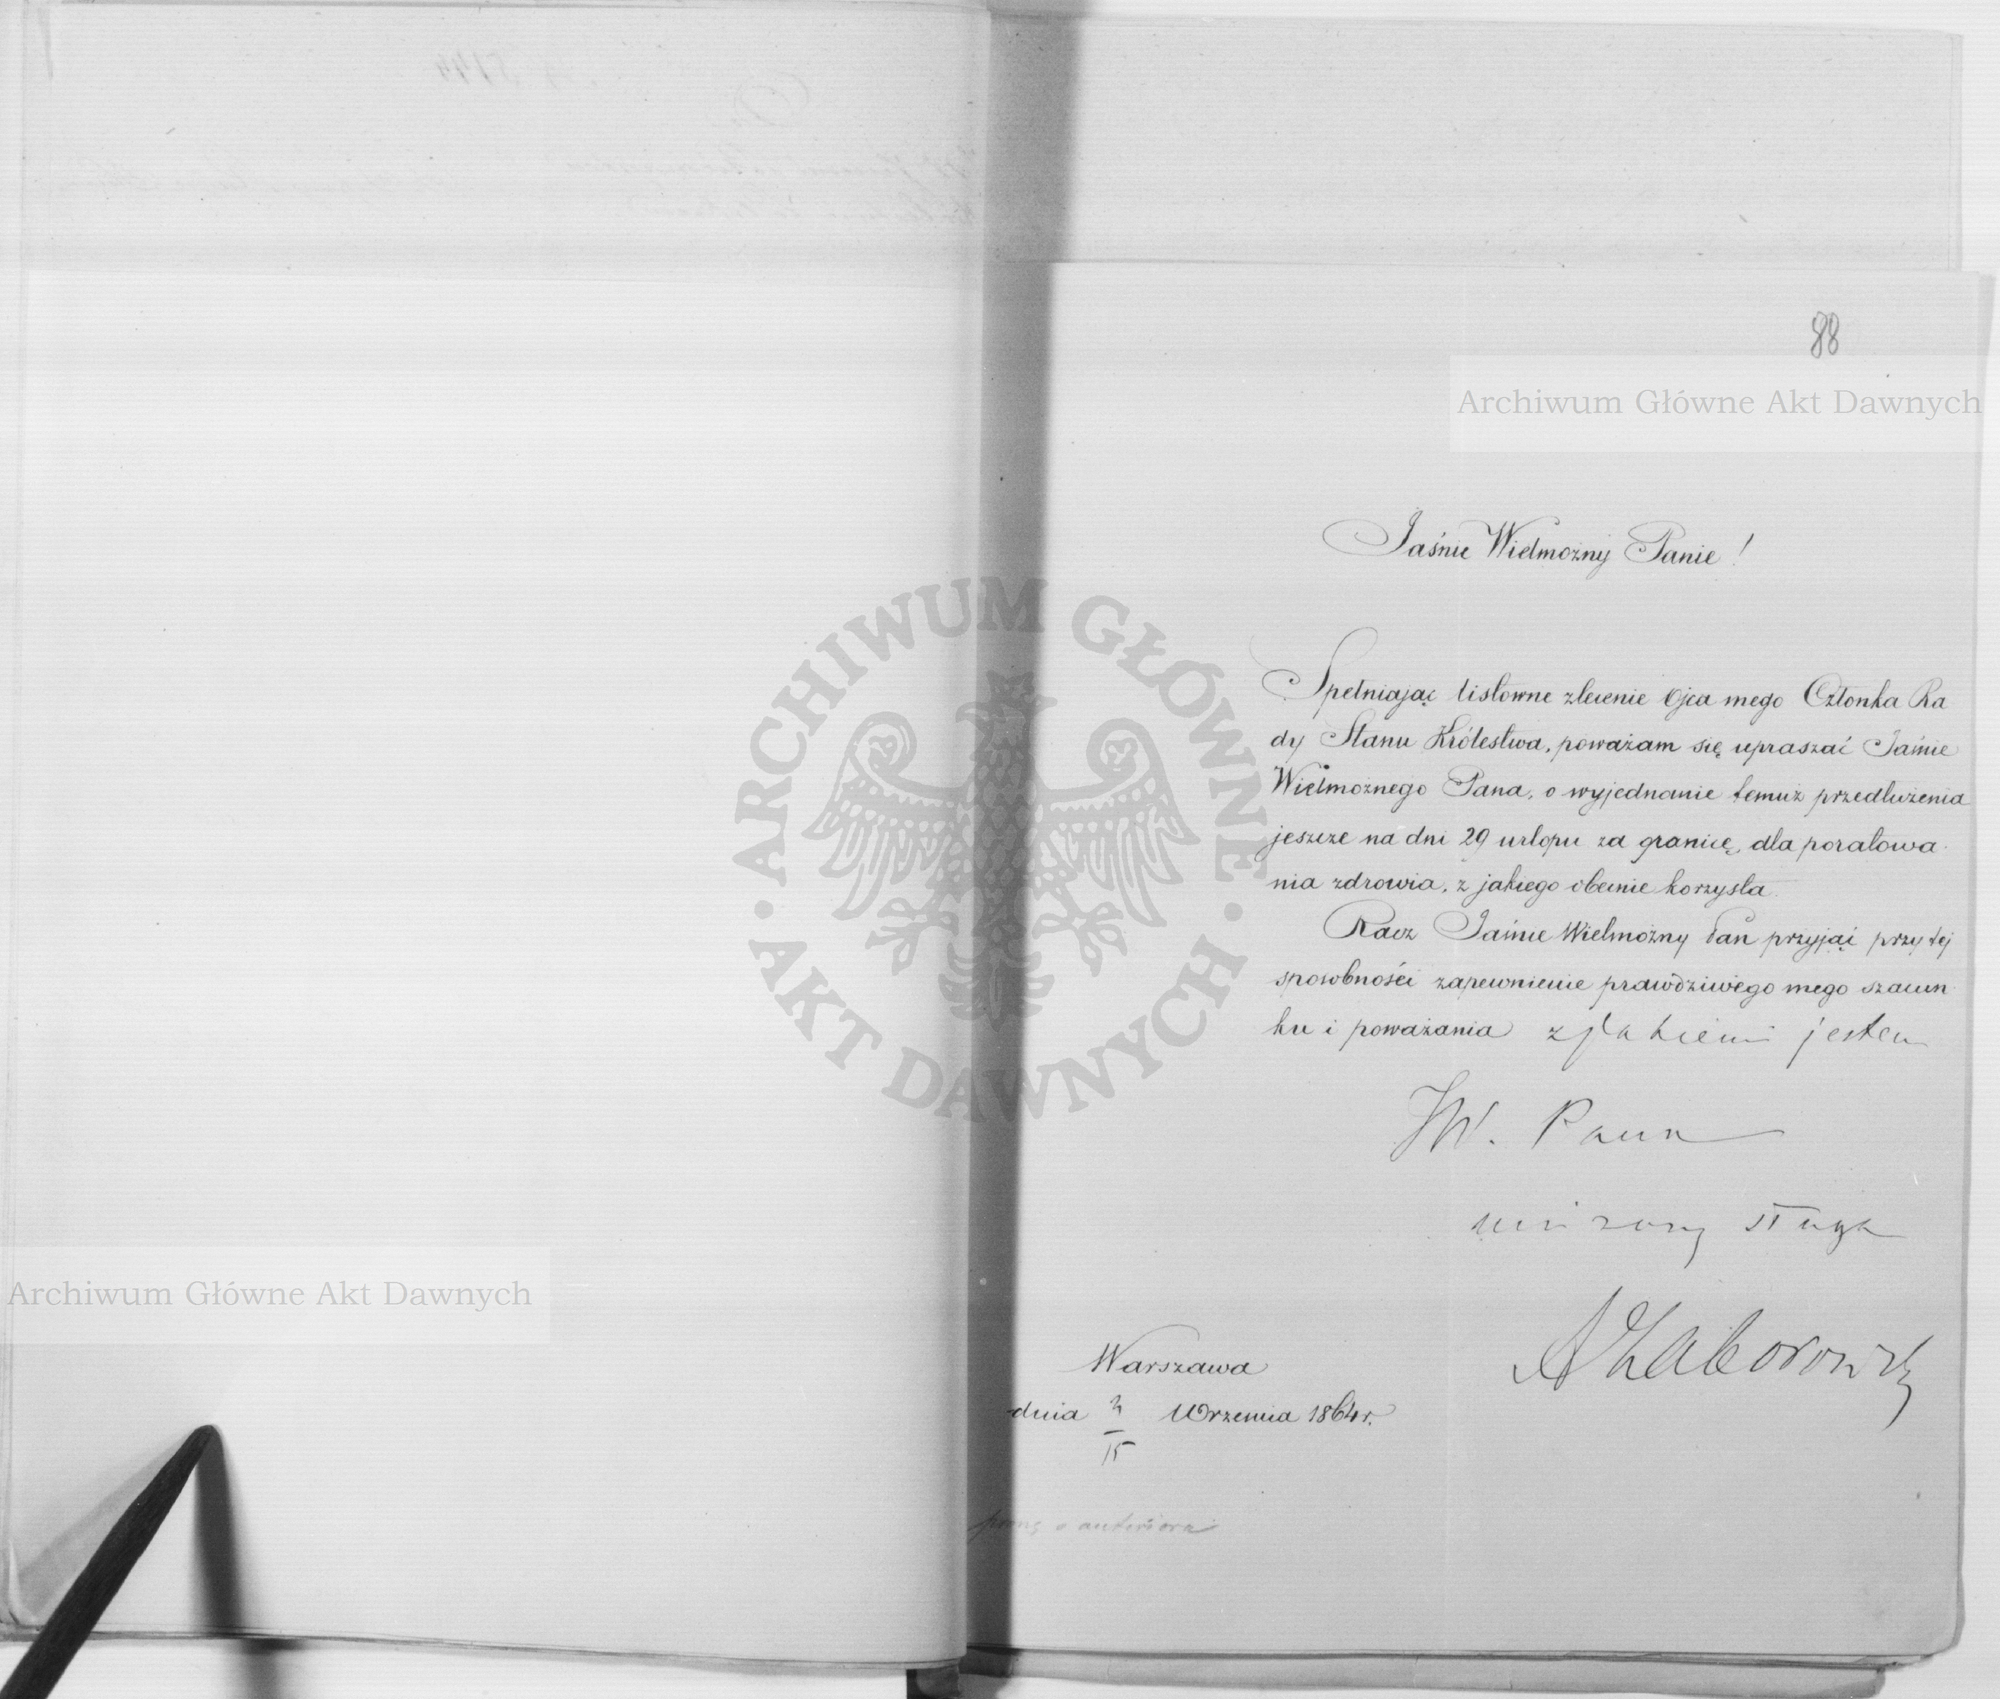 88
Archiwum Główne Akt Dawnych
Jaśnie Wielmożny Panie!
Spełniając listowne zlecenie Ojca mego Członka Ra
dy Stanu Królestwa, poważam się upraszać Jaśnie
Wielmożnego Pana, o wyjednanie temuż przedłużenia
jeszcze na dni 29 urlopu za granicę, dla poratowa-
nia zdrowia, z jakiego obecnie korzysta.
Racz Jaśnie Wielmożny Pan przyjąć przy tej
sposobności zapewnienie prawdziwego mego szacun-
ku i poważania z jakiemi jestem
JW. Pana
uniżony sługa
AZaborowski
Warszawa
dnia 3/15 Września 1864 r.
ARCHIWUM GŁÓWNE
AKT DAWNYCH
Archiwum Główne Akt Dawnych